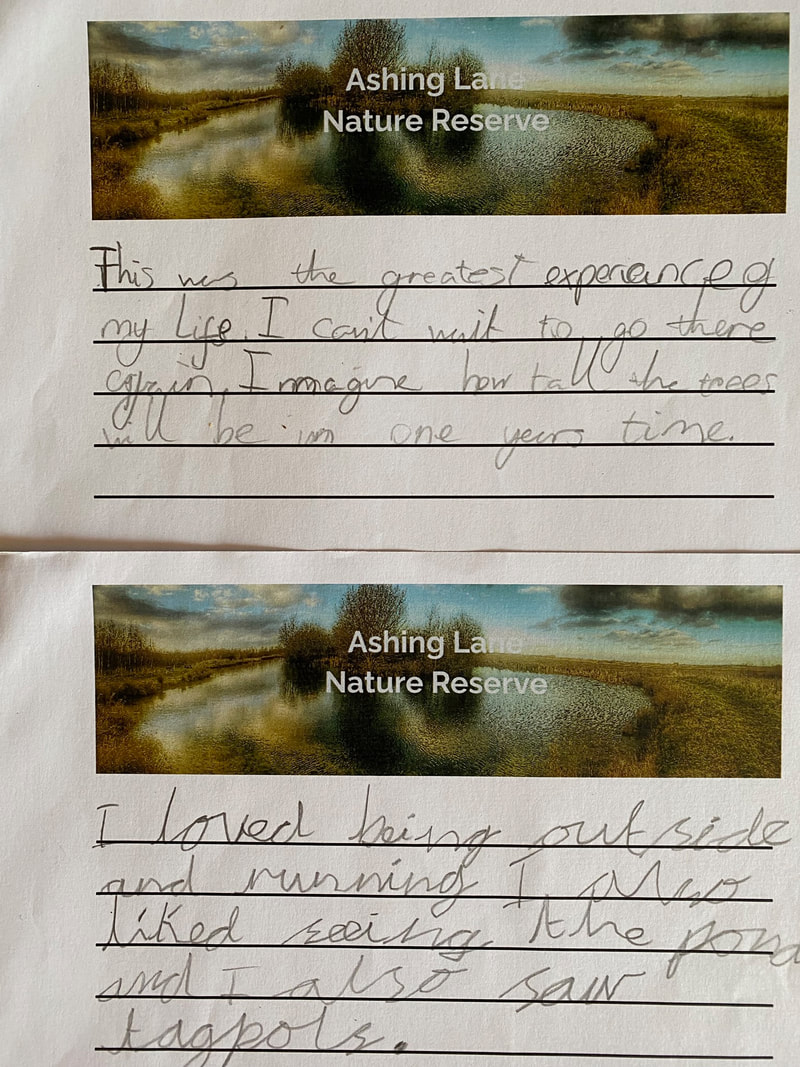 Ashing Lane
Nature Reserve
This was the greatest experiance of
my Life. I can't wait to go there
again. Immagine how tall the trees
will be in one years time.
Ashing Lane
Nature Reserve
I loved being outside
and running I also
liked seeing the pond
and I also saw
tagpols.